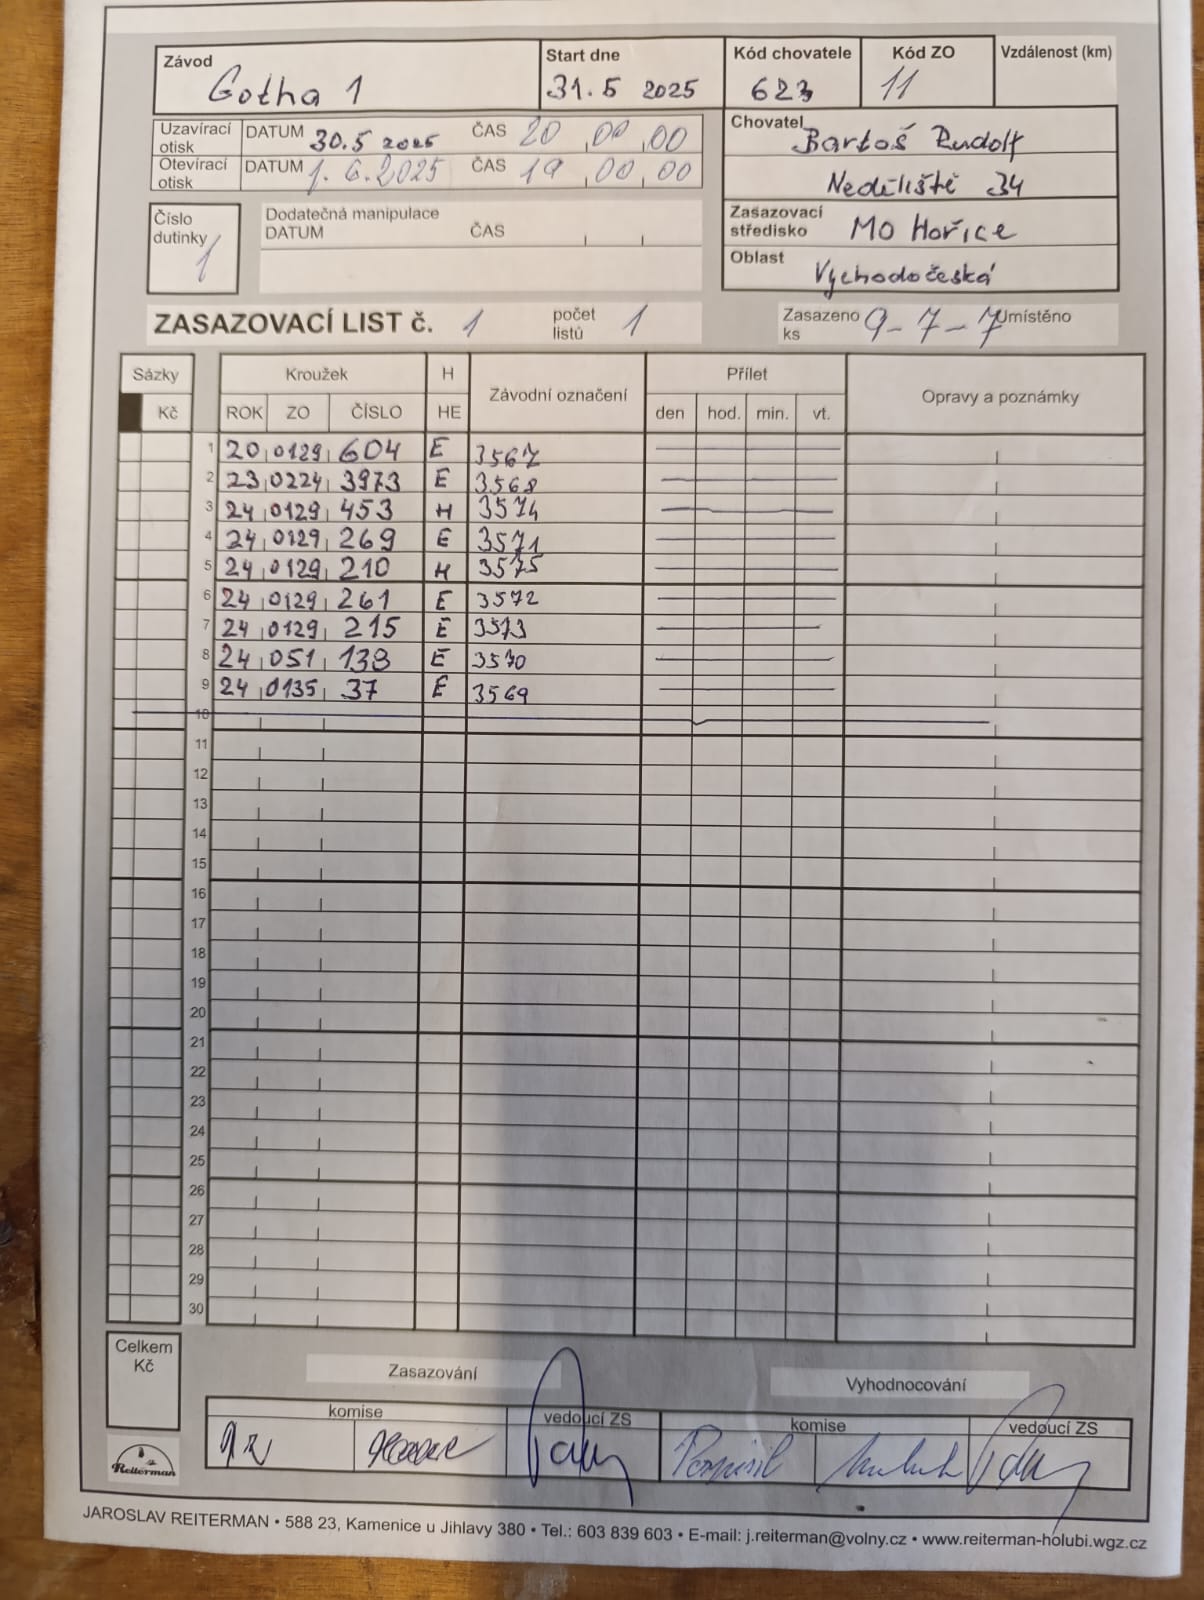 Závod Start dne Kód chovatele Kód ZO Vzdálenost (km)
Gotha 1 31.5 2025 623 11
Uzavírací otisk DATUM 30.5 2025 ČAS 20 00 00
Otevírací otisk DATUM 1.6.2025 ČAS 19 00 00
Chovatel Bartoš Rudolf
Neděliště 34
Zasazovací středisko MO Hořice
Oblast Východočeská
Číslo dutinky 1
Dodatečná manipulace
DATUM ČAS
ZASAZOVACÍ LIST č. 1 počet listů 1 Zasazeno ks 9-7-7 Umístěno
Sázky Kroužek H Závodní označení Přílet Opravy a poznámky
Kč ROK ZO ČÍSLO HE den hod. min. vt.
1 20 0129 604 E 3567
2 23 0224 3973 E 3568
3 24 0129 453 H 3574
4 24 0129 269 E 3571
5 24 0129 210 H 3575
6 24 0129 261 E 3572
7 24 0129 215 E 3573
8 24 051 138 E 3570
9 24 0135 37 E 3569
10
11
12
13
14
15
16
17
18
19
20
21
22
23
24
25
26
27
28
29
30
Celkem Kč
Zasazování Vyhodnocování
komise vedoucí ZS komise vedoucí ZS
Reiterman
JAROSLAV REITERMAN • 588 23, Kamenice u Jihlavy 380 • Tel.: 603 839 603 • E-mail: j.reiterman@volny.cz • www.reiterman-holubi.wgz.cz